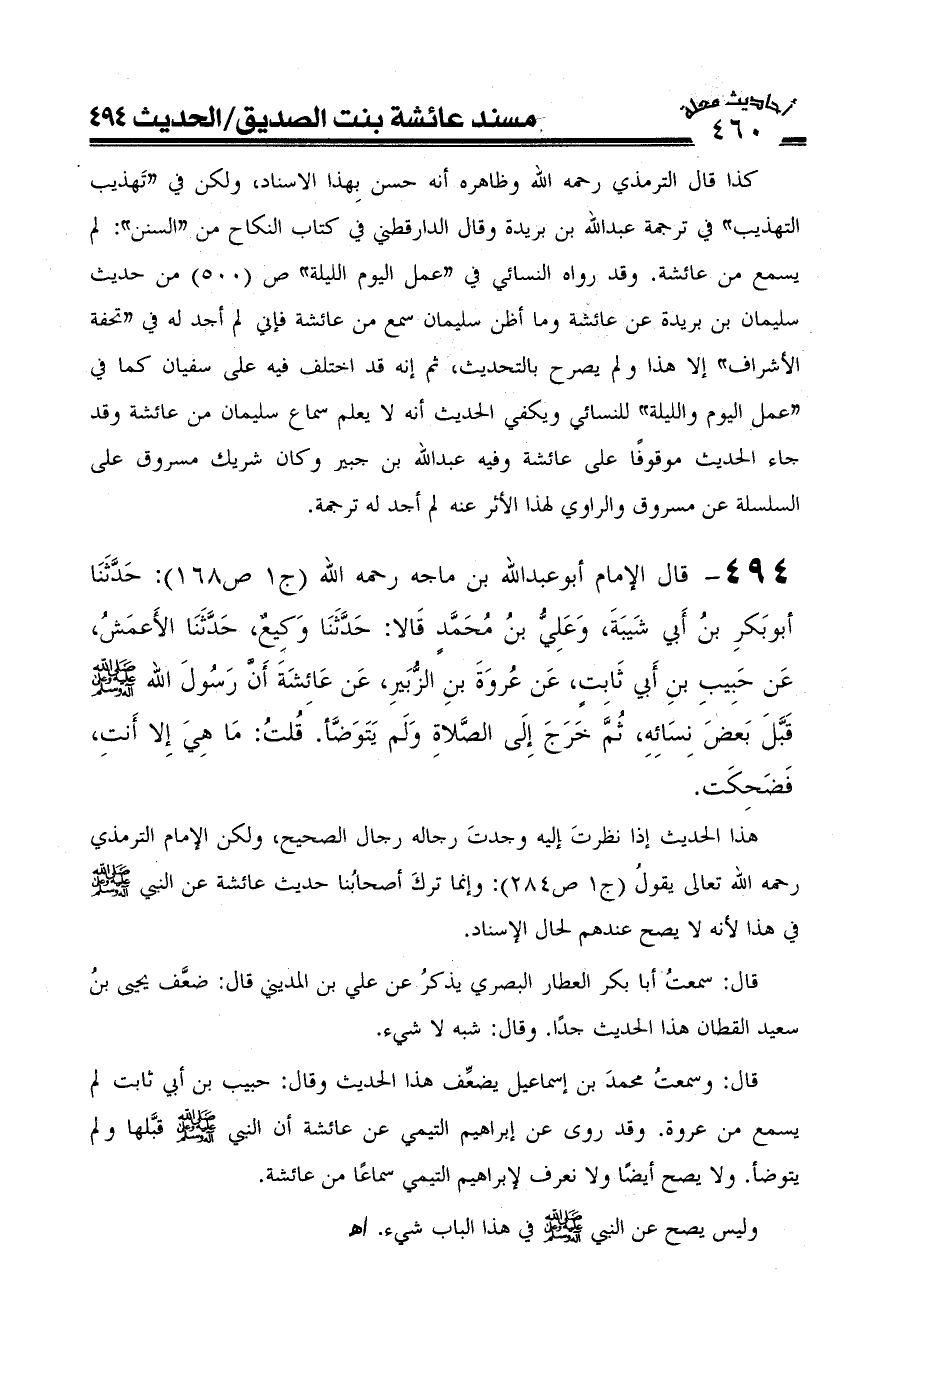 أحاديث معلة
٤٦٠
مسند عائشة بنت الصديق/الحديث ٤٩٤
كذا قال الترمذي رحمه الله وظاهره أنه حسن بِهذا الاسناد، ولكن في «تَهذيب
التهذيب» في ترجمة عبدالله بن بريدة وقال الدارقطني في كتاب النكاح من «السنن»: لم
يسمع من عائشة. وقد رواه النسائي في «عمل اليوم الليلة» ص (٥٠٠) من حديث
سليمان بن بريدة عن عائشة وما أظن سليمان سمع من عائشة فإني لم أجد له في «تحفة
الأشراف» إلا هذا ولم يصرح بالتحديث، ثم إنه قد اختلف فيه على سفيان كما في
«عمل اليوم والليلة» للنسائي ويكفي الحديث أنه لا يعلم سماع سليمان من عائشة وقد
جاء الحديث موقوفًا على عائشة وفيه عبدالله بن جبير وكان شريك مسروق على
السلسلة عن مسروق والراوي لهذا الأثر عنه لم أجد له ترجمة.
٤٩٤- قال الإمام أبوعبدالله بن ماجه رحمه الله (ج١ ص١٦٨): حَدَّثَنَا
أبوبَكرِ بنُ أَبي شَيبَةَ، وَعَليُّ بنُ مُحَمَّدٍ قَالا: حَدَّثَنَا وَكِيعٌ، حَدَّثَنَا الأَعمَشُ،
عَن حَبِيبِ بنِ أَبي ثَابِتٍ، عَن عُروَةَ بنِ الزُّبَيرِ، عَن عَائِشَةَ أَنَّ رَسُولَ الله ﷺ
قَبَّلَ بَعضَ نِسَائِهِ، ثُمَّ خَرَجَ إِلَى الصَّلاةِ وَلَم يَتَوَضَّأ. قُلتُ: مَا هِيَ إِلا أَنتِ،
فَضَحِكَت.
هذا الحديث إذا نظرتَ إليه وجدتَ رجاله رجال الصحيح، ولكن الإمام الترمذي
رحمه الله تعالى يقولُ (ج١ ص٢٨٤): وإنما تركَ أصحابُنا حديث عائشة عن النبي ﷺ
في هذا لأنه لا يصح عندهم لحال الإسناد.
قال: سمعتُ أبا بكر العطار البصري يذكرُ عن علي بن المديني قال: ضعَّف يحيى بنُ
سعيد القطان هذا الحديث جدًا. وقال: شبه لا شيء.
قال: وسمعتُ محمدَ بن إسماعيل يضعِّف هذا الحديث وقال: حبيب بن أبي ثابت لم
يسمع من عروة. وقد روى عن إبراهيم التيمي عن عائشة أن النبي ﷺ قبَّلها ولم
يتوضأ. ولا يصح أيضًا ولا نعرف لإبراهيم التيمي سماعًا من عائشة.
وليس يصح عن النبي ﷺ في هذا الباب شيء. اﻫ